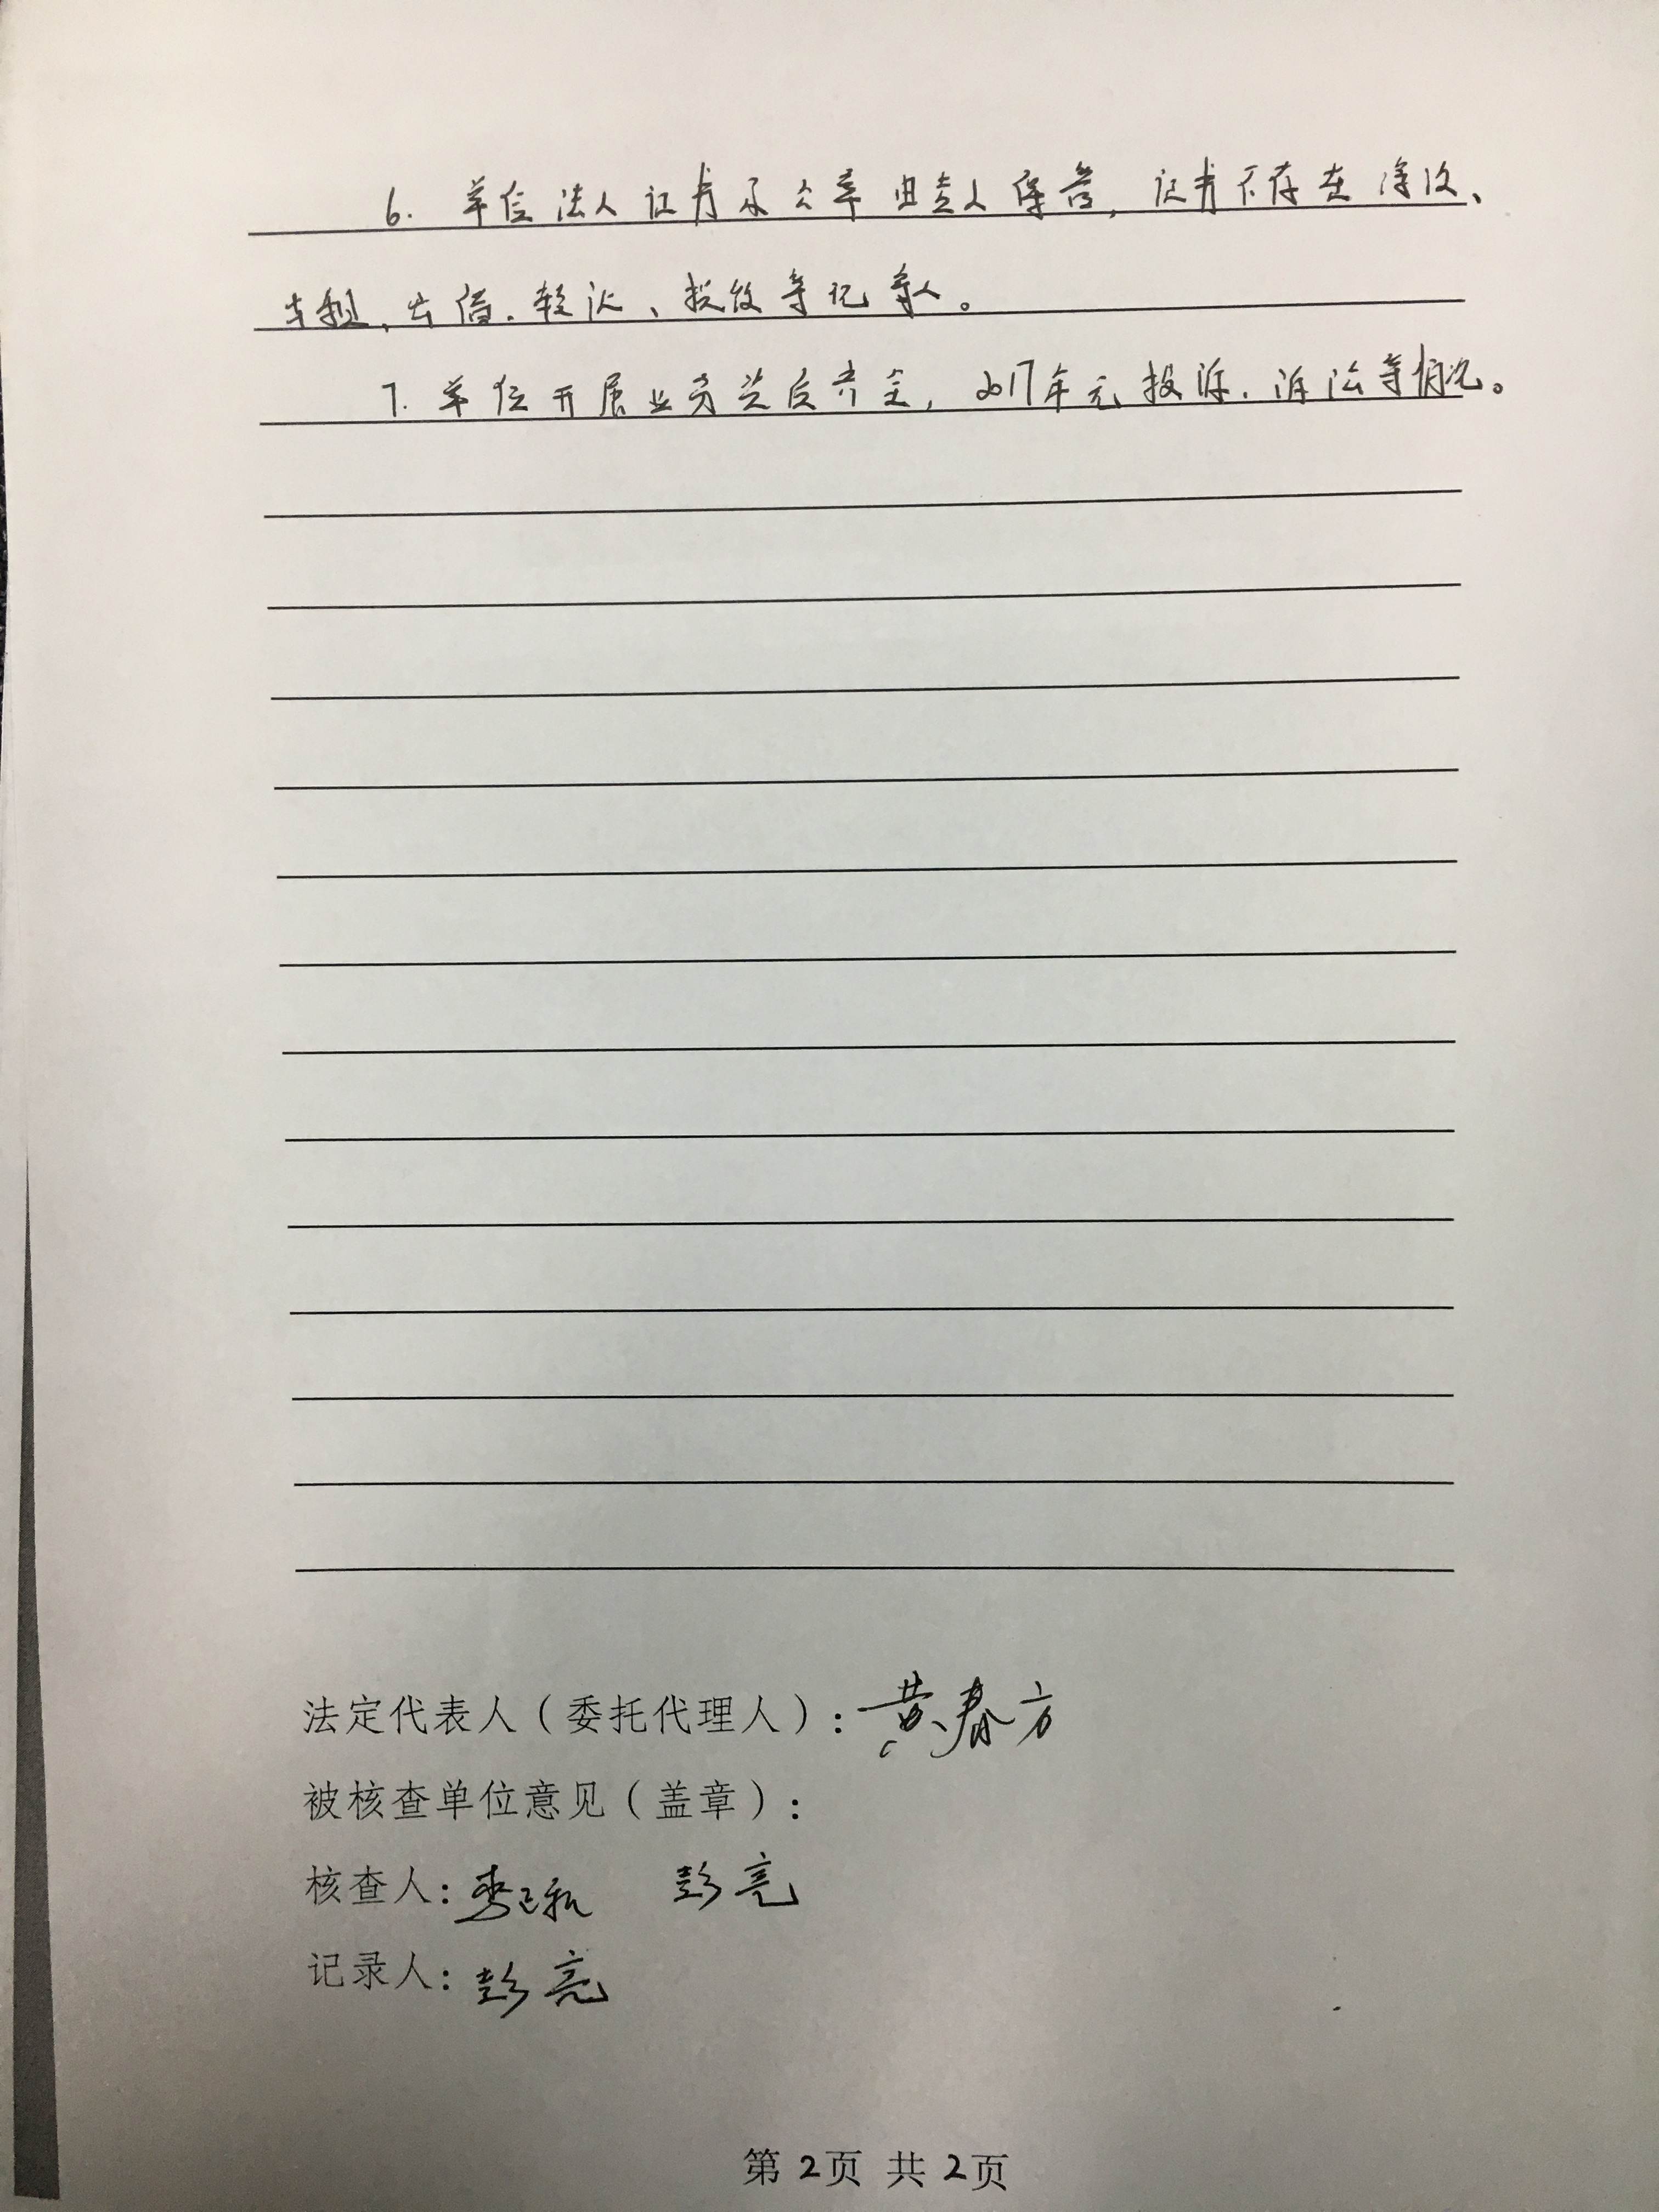 6. 单位法人证书及公章由专人保管，证书不存在涂改、
出租、出借、转让、抵押等记录。
7. 单位开展业务资质齐全，2017年无投诉、诉讼等情况。
法定代表人（委托代理人）：黄春方
被核查单位意见（盖章）：
核查人： 彭亮
记录人：彭亮
第2页 共2页